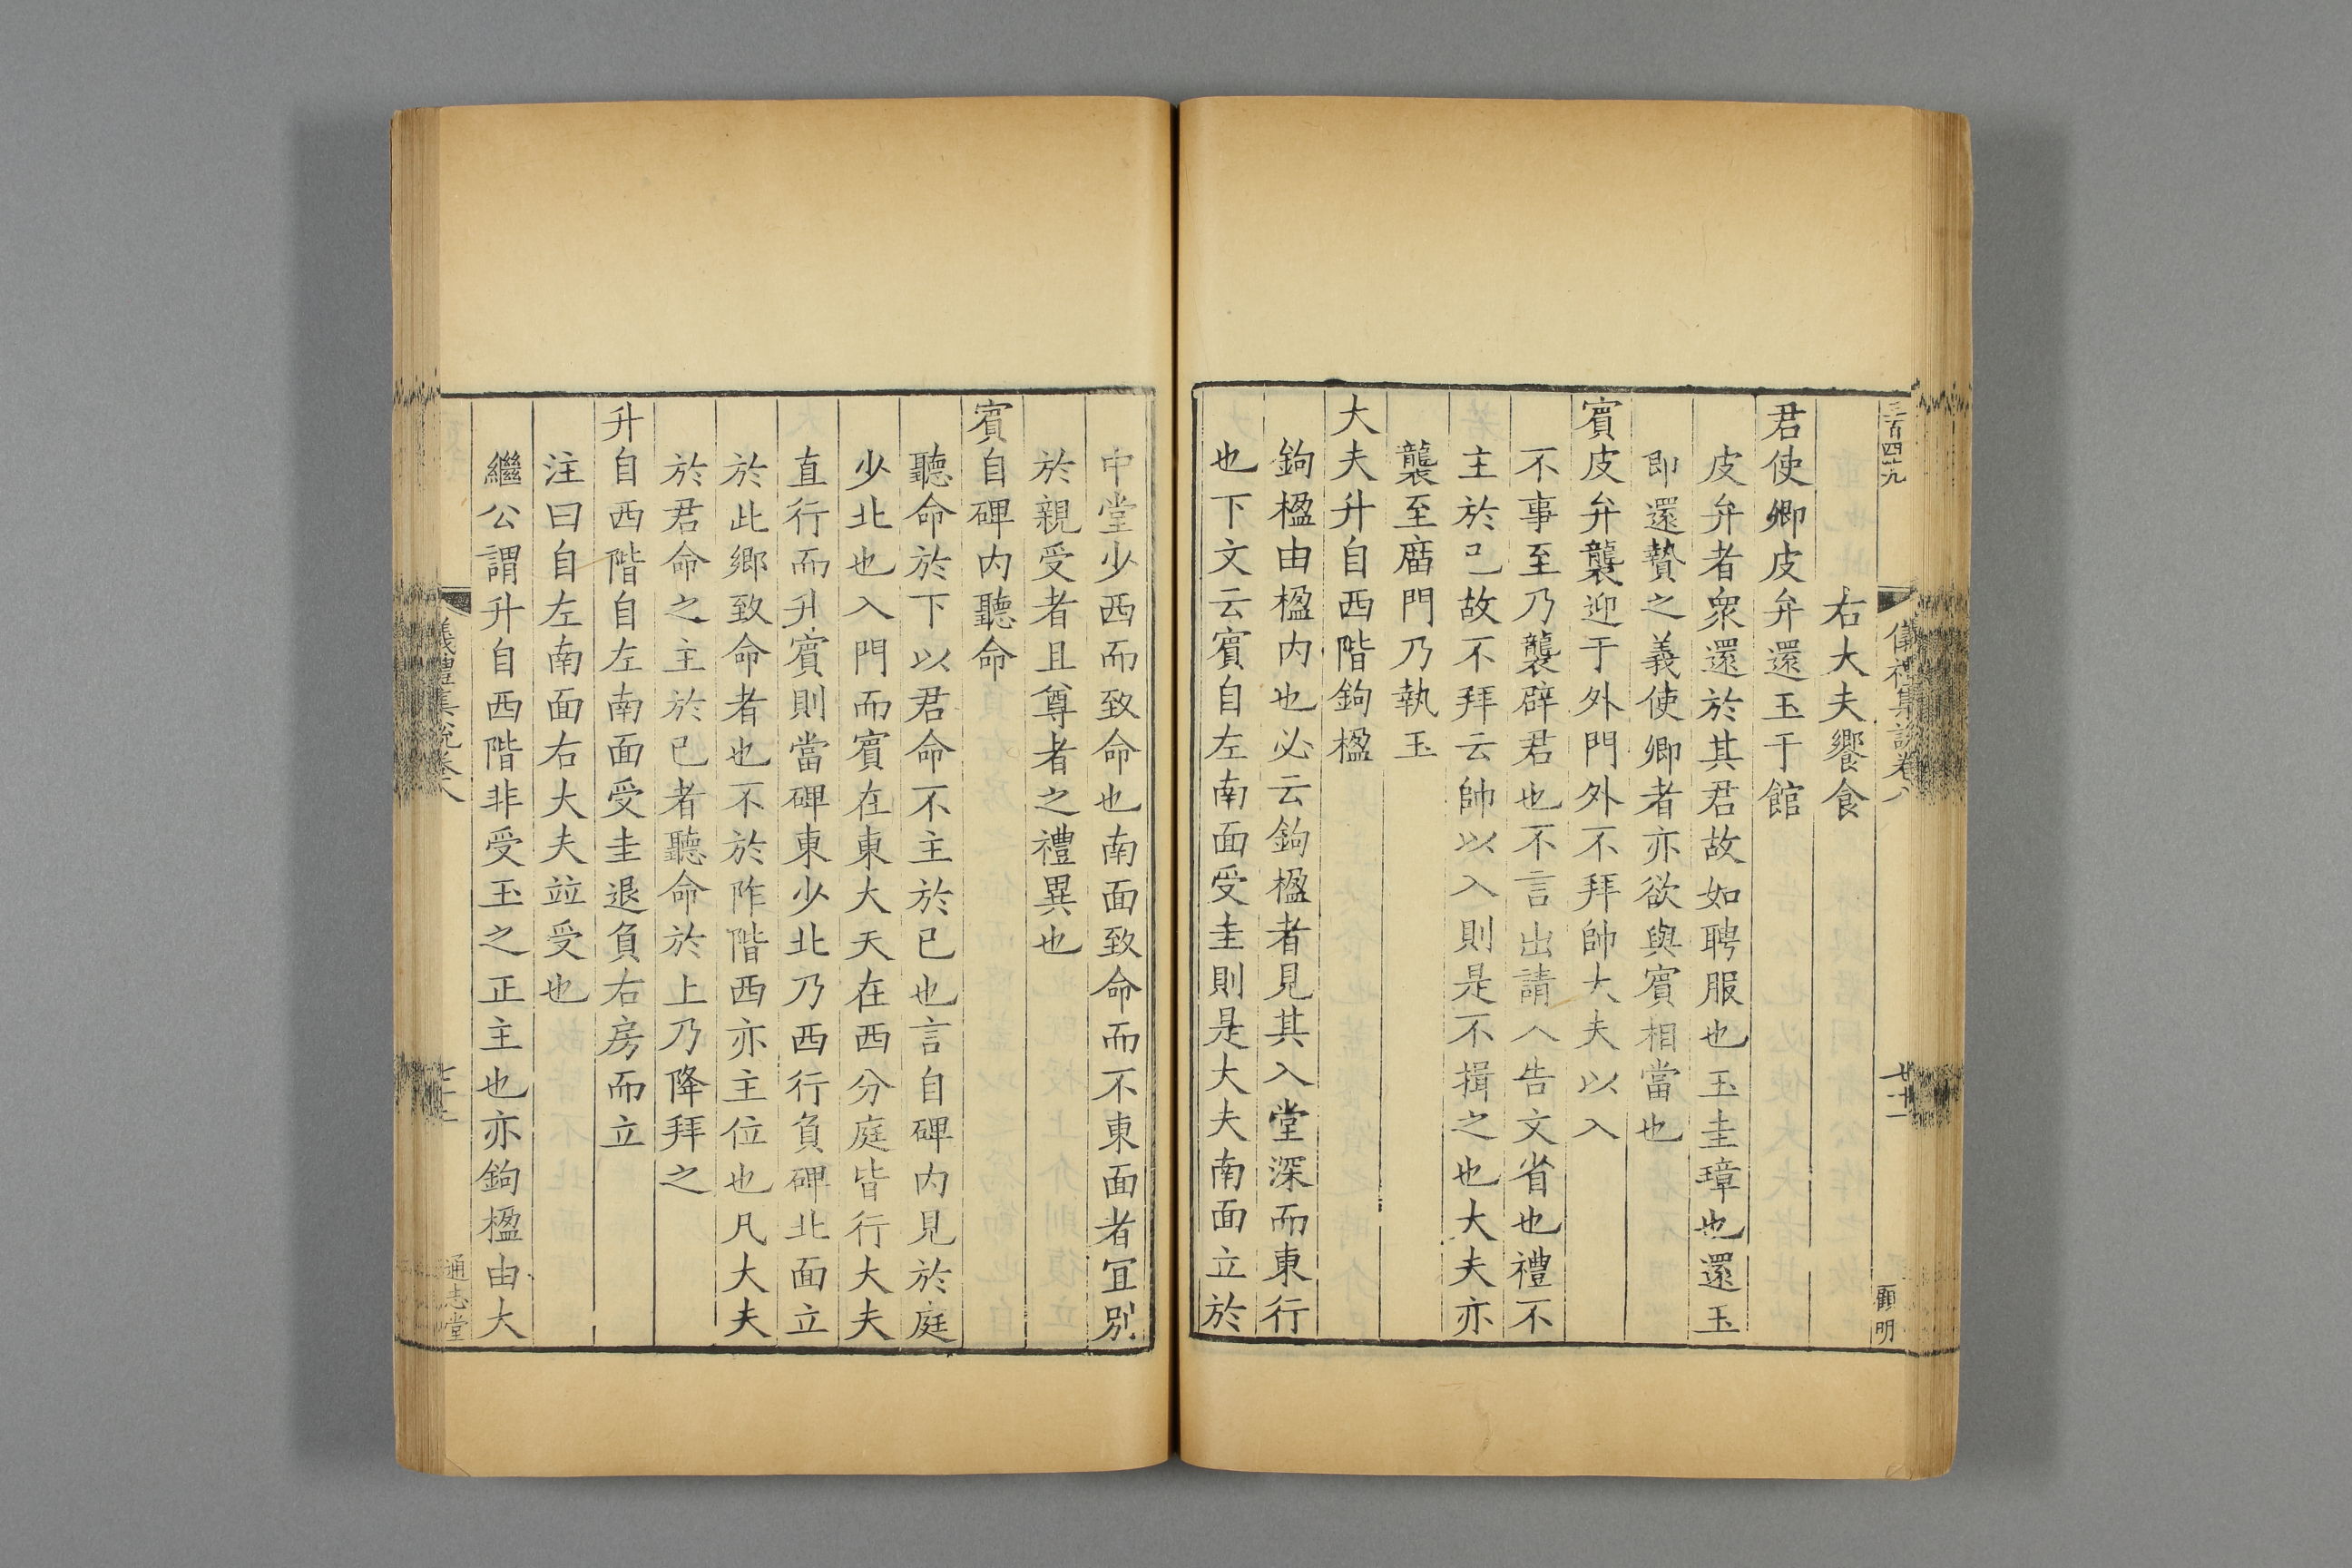 三百四十九
儀禮集説卷八
顧明
右大夫饗食
君使卿皮弁還玉于館
皮弁者衆還於其君故如聘服也玉圭璋也還玉
即還贄之義使卿者亦欲與賓相當也
賓皮弁襲迎于外門外不拜帥大夫以入
不事至乃襲辟君也不言出請入告文省也禮不
主於己故不拜云帥以入則是不揖之也大夫亦
襲至廟門乃執玉
大夫升自西階鉤楹
鉤楹由楹内也必云鉤楹者見其入堂深而東行
也下文云賓自左南面受圭則是大夫南面立於
中堂少西而致命也南面致命而不東面者宜別
於親受者且尊者之禮異也
賓自碑内聽命
聽命於下以君命不主於已也言自碑内見於庭
少北也入門而賓在東大夫在西分庭皆行大夫
直行而升賓則當碑東少北乃西行負碑北面立
於此鄉致命者也不於阼階西亦主位也凡大夫
於君命之主於已者聽命於上乃降拜之
升自西階自左南面受圭退負右房而立
注曰自左南面右大夫竝受也
繼公謂升自西階非受玉之正主也亦鉤楹由大
儀禮集說卷八
通志堂